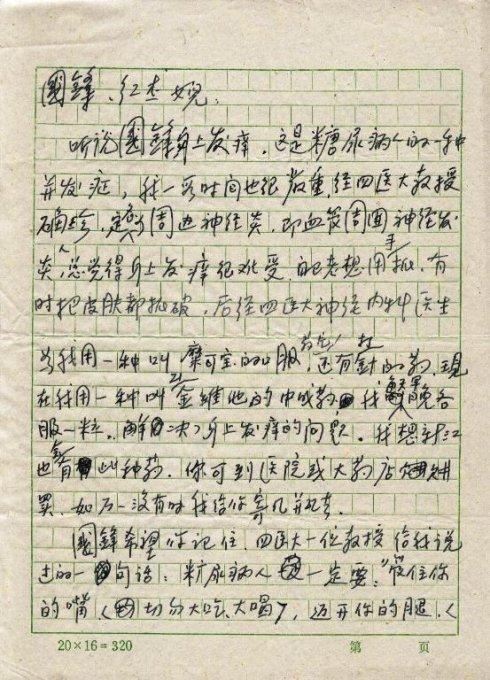 國鋒、红杰 婗:
听说國鋒身上发痒，这是糖尿病人的一种
并发症，我一段时间也很严重，经四医大教授
确诊，定为周边神经炎，即血管周围神经发
炎，人总觉得身上发痒很难受，老想用手抓，有
时把皮肤都抓破，后经四医大神经内科医生
为我用一种叫 弥可宝的口服药，还有针的药，现
在我用一种叫 金维他的中成药 我 早晚各
服一粒，解决了身上发痒的问题。我想
也有此种药，你可到医院或大药店
买，如万一没有时我给你寄几并去
國鋒希望你记住，四医大一位教授给我说
过的一句话：糖尿病人一定要，"管住你
的嘴（切勿大吃、大喝），迈开你的腿，（
20×16=320 第 页